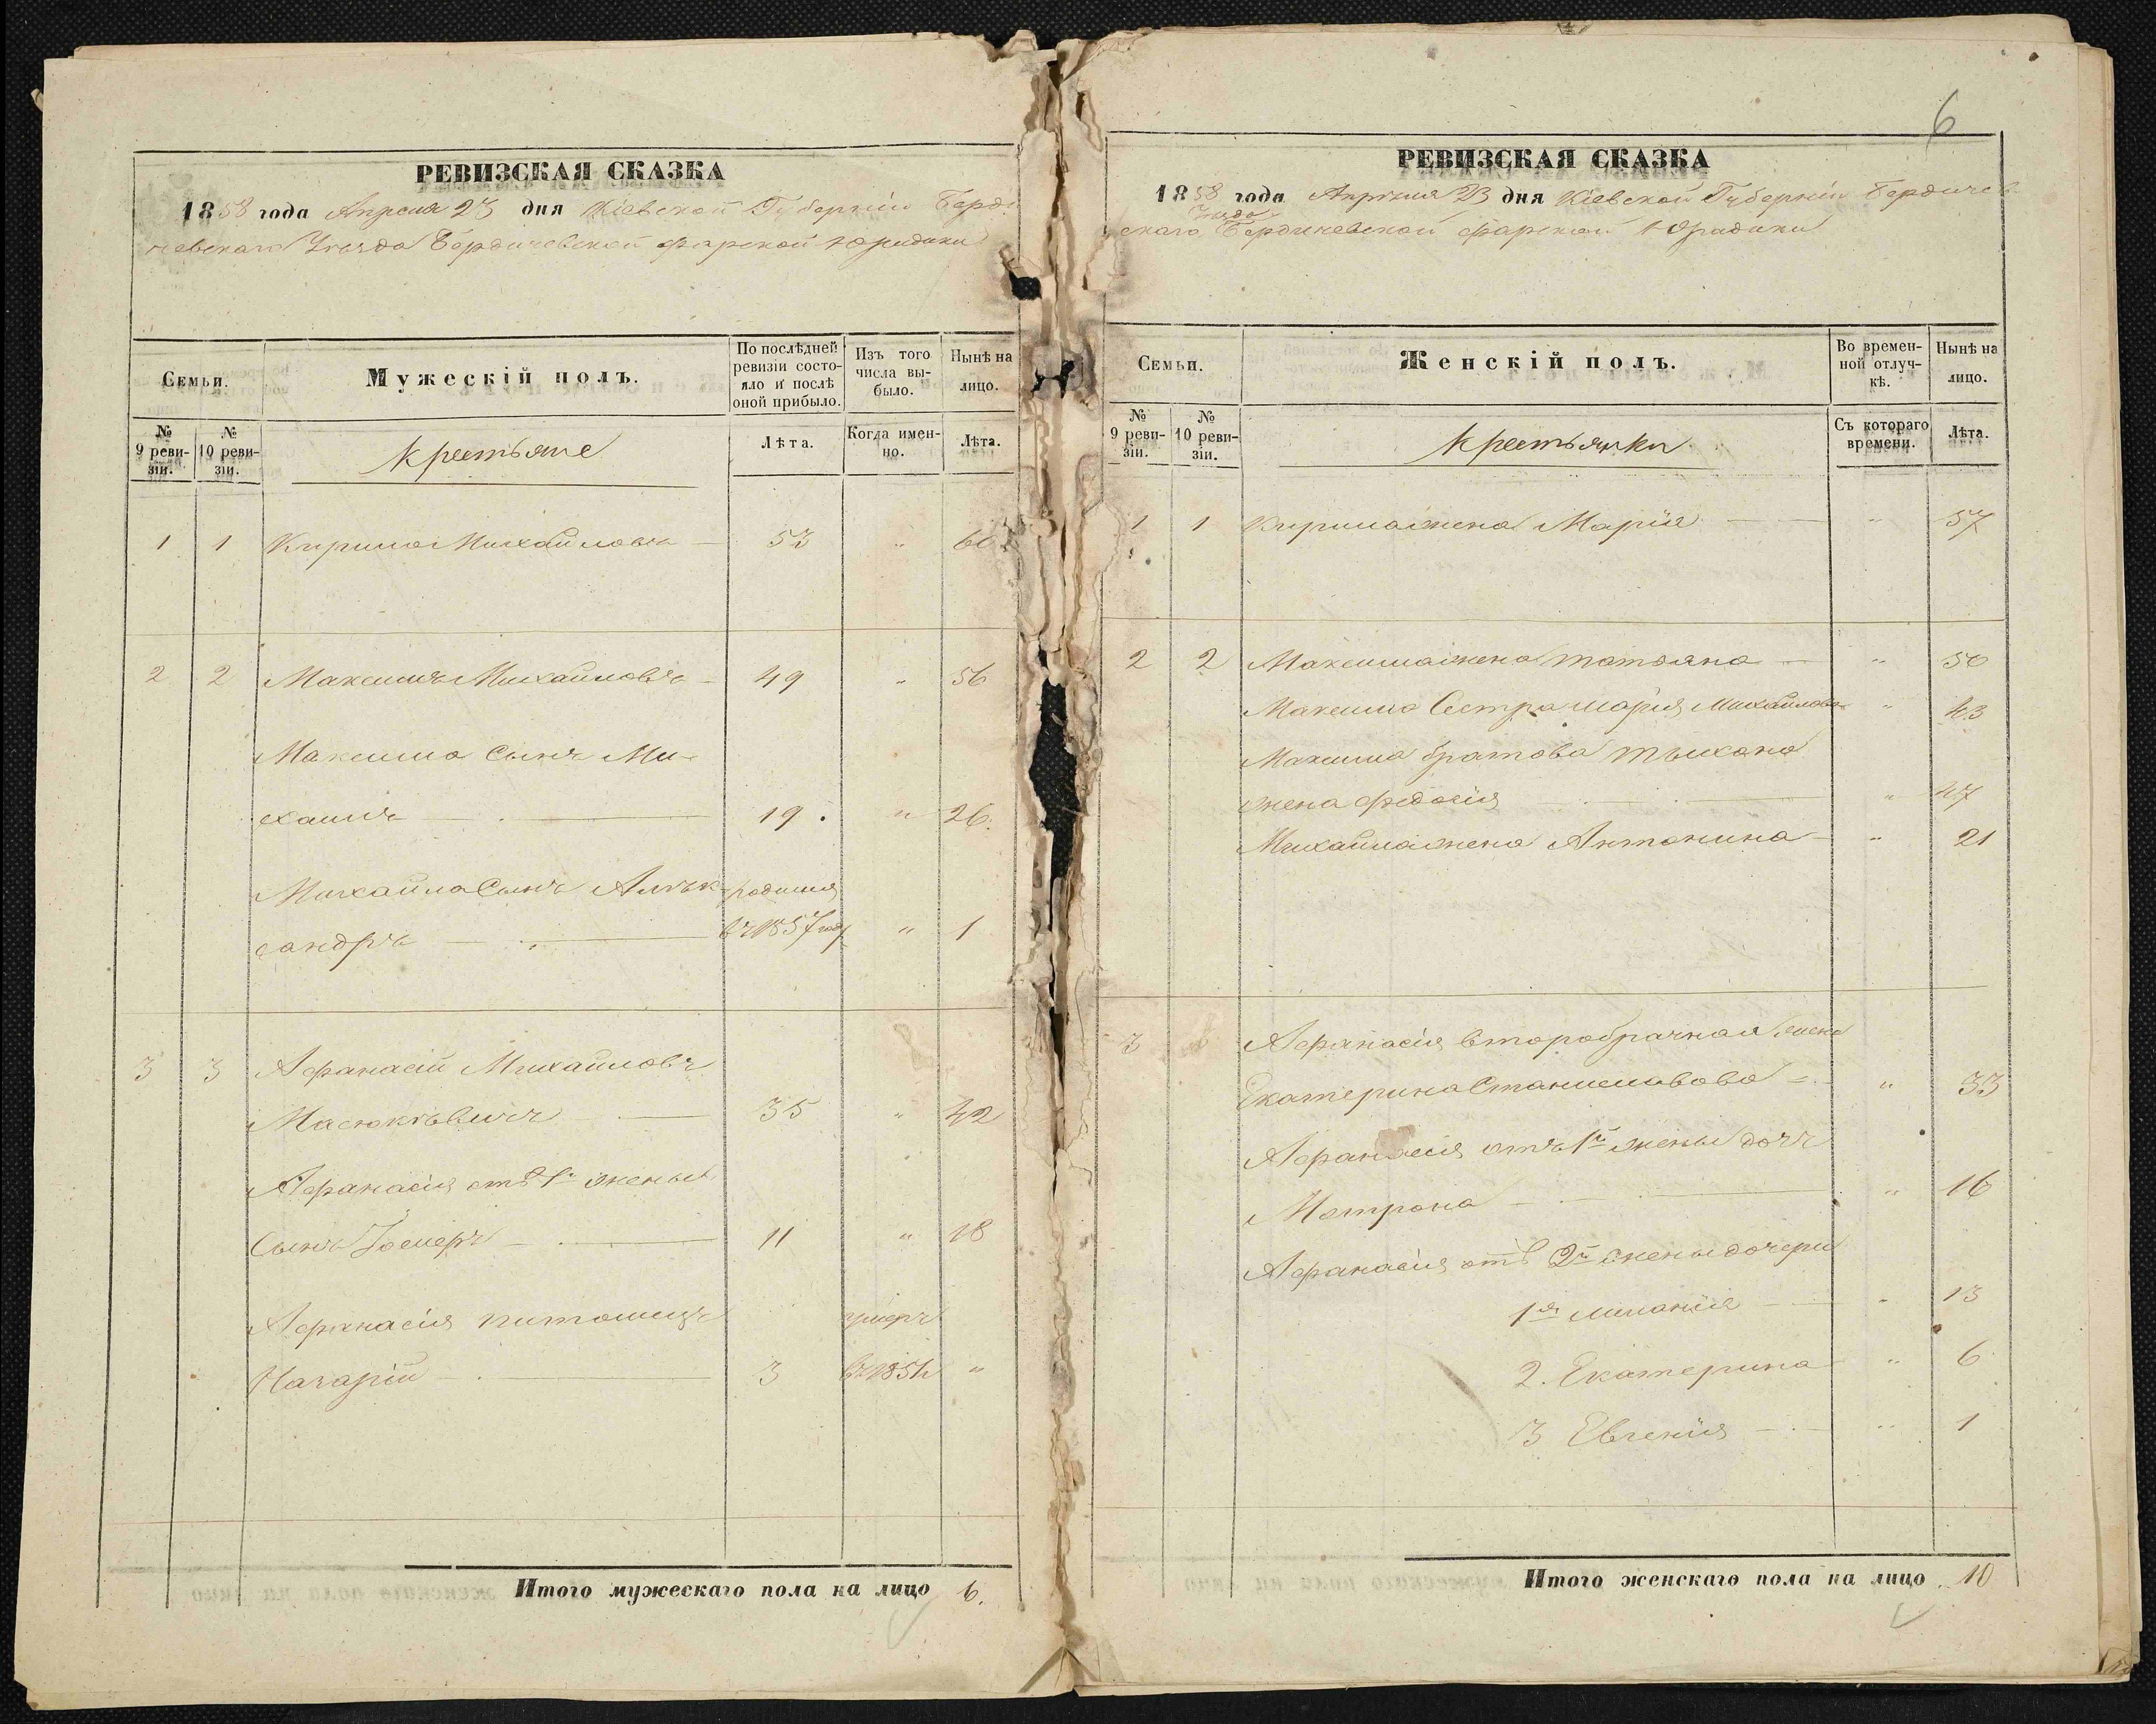 РЕВИЗСКАЯ СКАЗКА
1858 года Апреля 23 дня Кіевской Губерніи Берди
чевскаго Уезда Бердичевской фарской Юридики
Семьи.
Мужескій полъ.
По послѣдней ревизіи состояло и послѣ оной прибыло.
Изъ того числа выбыло.
Нынѣ на лицо.
№ 9 ревизіи.
№ 10 ревизіи.
Крестьяне
Лѣта.
Когда именно.
Лѣта.
1 1 Кирило Михайловъ — 53 " 60
2 2 Максимъ Михайловъ — 49 " 56
Максима Сынъ Ми-
хаилъ — 19. " 26.
Михайла Сынъ Алѣк- родился
сандръ — въ 1857 году " 1
3 3 Афанасій Михайловъ
Масюкѣвичъ — 35 " 42
Афанасія отъ 1й жены
Сынъ Іосифъ — 11 " 18
Афанасія питомецъ умеръ
Назарій — 3 въ 1851 "
Итого мужескаго пола на лицо 6.
6
РЕВИЗСКАЯ СКАЗКА
1858 года Апрѣля 23 дня Кіевской Губерніи Бердичев
Уезда
скаго Бердичевской фарской Юрадики
Семьи.
Женскій полъ.
Во временной отлучкѣ.
Нынѣ на лицо.
№ 9 ревизіи.
№ 10 ревизіи.
Крестьянки
Съ котораго времени.
Лѣта.
1 1 Кирила жена Марія — " 57
2 2 Максима жена Татьяна — " 50
Максима Сестра Марія Михайлова " 43
Максима братова Тыхона
жена Федосія — " 47
Михайла жена Антонина — " 21
3 Афанасія второбрачная жена
Екатерина Станиславова — " 33
Афанасія отъ 1й жены дочь
Мотрона — " 16
Афанасія отъ 2й жены дочери
1я Миланія — " 13
2. Екатерина " 6
3 Евгенія — " 1
Итого женскаго пола на лицо 10